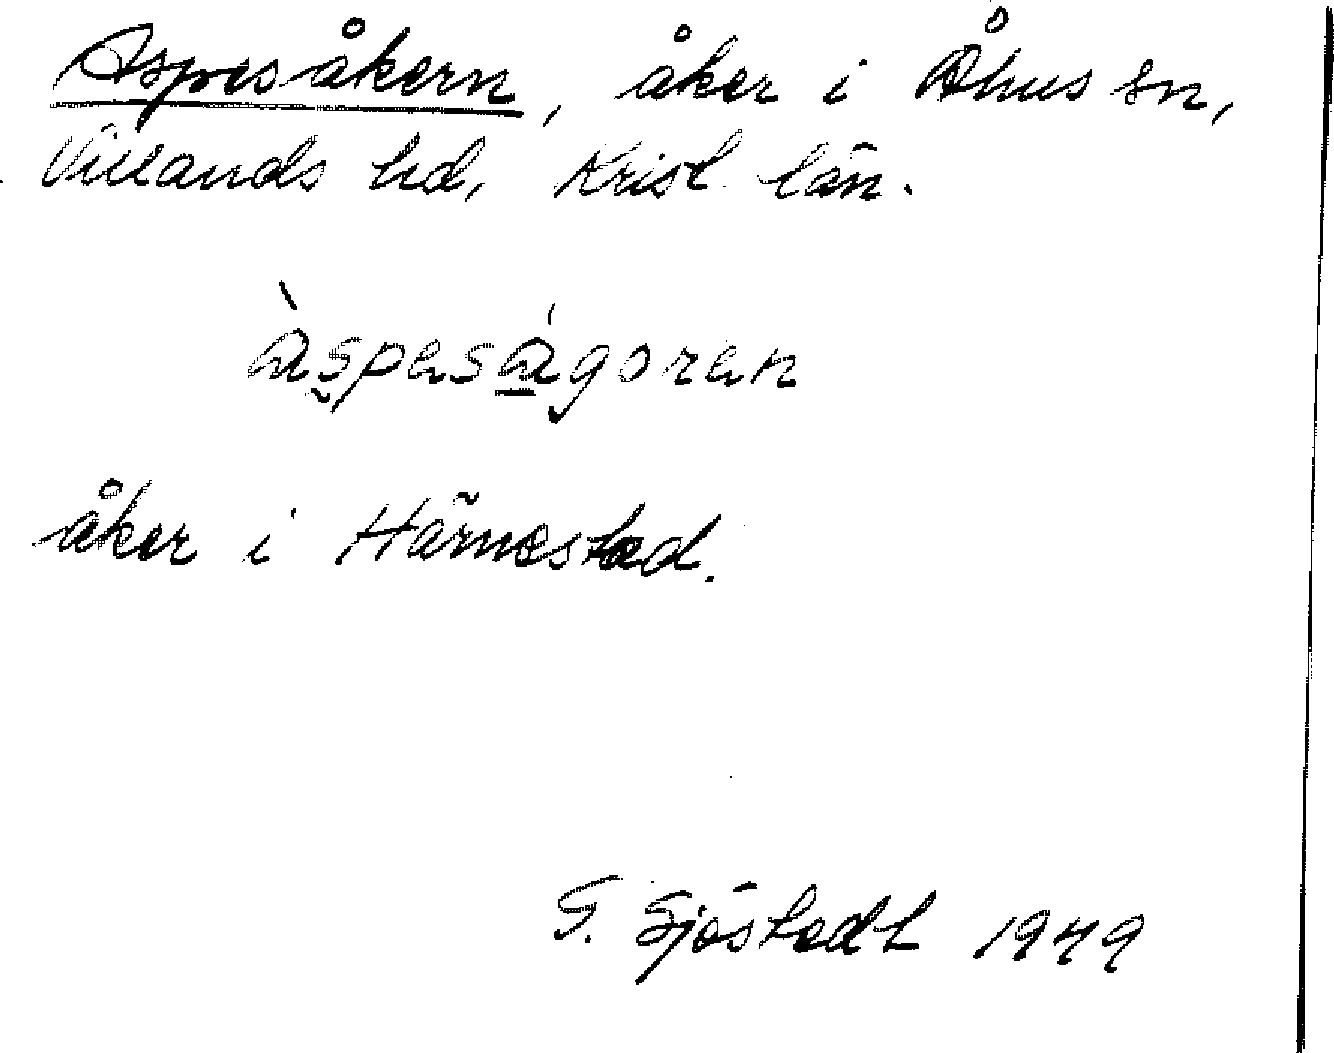 Aspesåkern, åker i Åhus sn,
Villands hd, Krist. län.
àspeságoren
åker i Härnestad.
G. Sjöstedt 1949